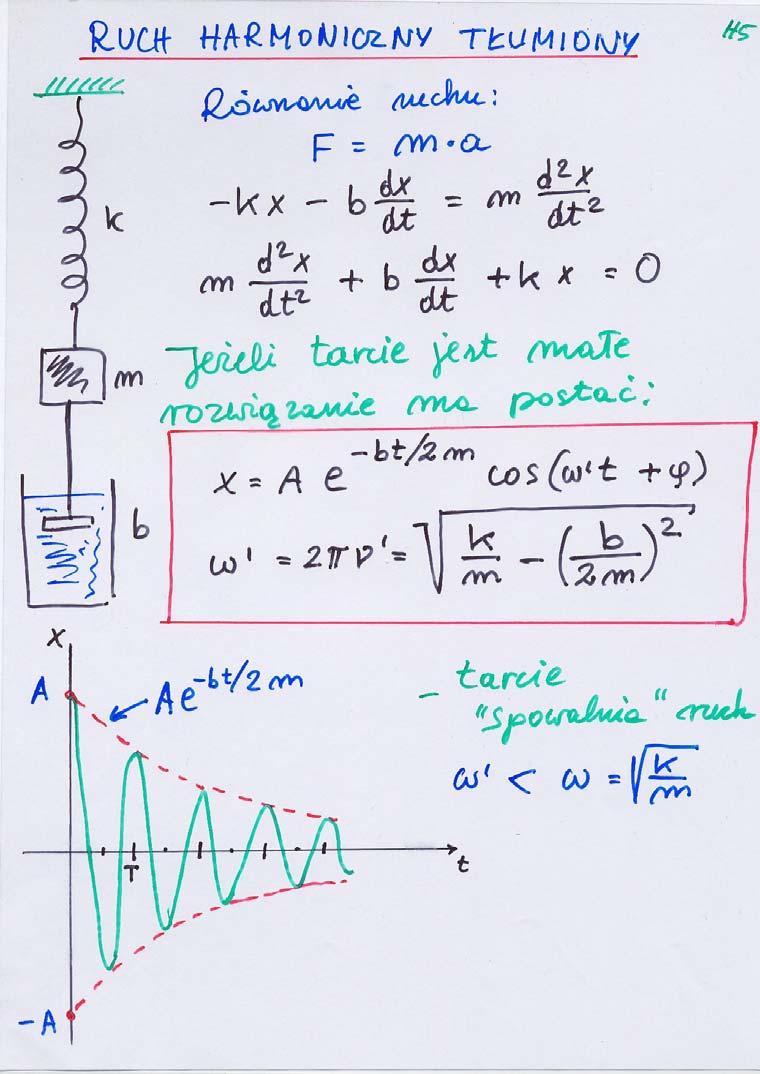 RUCH HARMONICZNY TŁUMIONY
H5
Równanie ruchu:
F = m·a
-kx - b dx/dt = m d²x/dt²
m d²x/dt² + b dx/dt + kx = 0
k
m
b
Jeżeli tarcie jest małe
rozwiązanie ma postać:
x = A e^{-bt/2m} cos(ω't + φ)
ω' = 2πν' = √(k/m - (b/2m)²)
x
A
Ae^{-bt/2m}
T
t
-A
- tarcie
"spowalnia" ruch
ω' < ω = √(k/m)